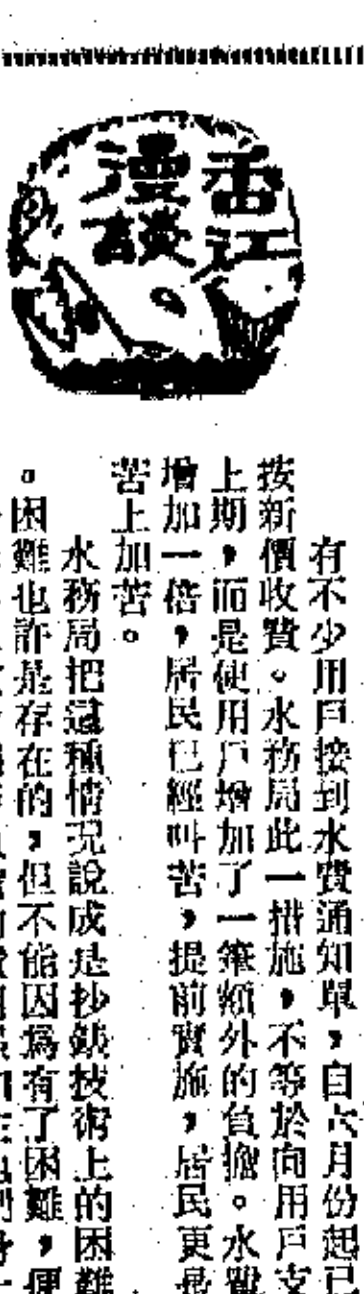 香江
漫談
有不少用戶接到水費通知單，自六月份起已
按新價收費。水務局此一措施，不等於向用戶支
上期，而是使用戶增加了一筆額外的負擔。水費
增加一倍，居民已經叫苦，提前實施，居民更是
苦上加苦。
水務局把這種情況說成是抄錶技術上的困難
。困難也許是存在的，但不能因為有了困難，便